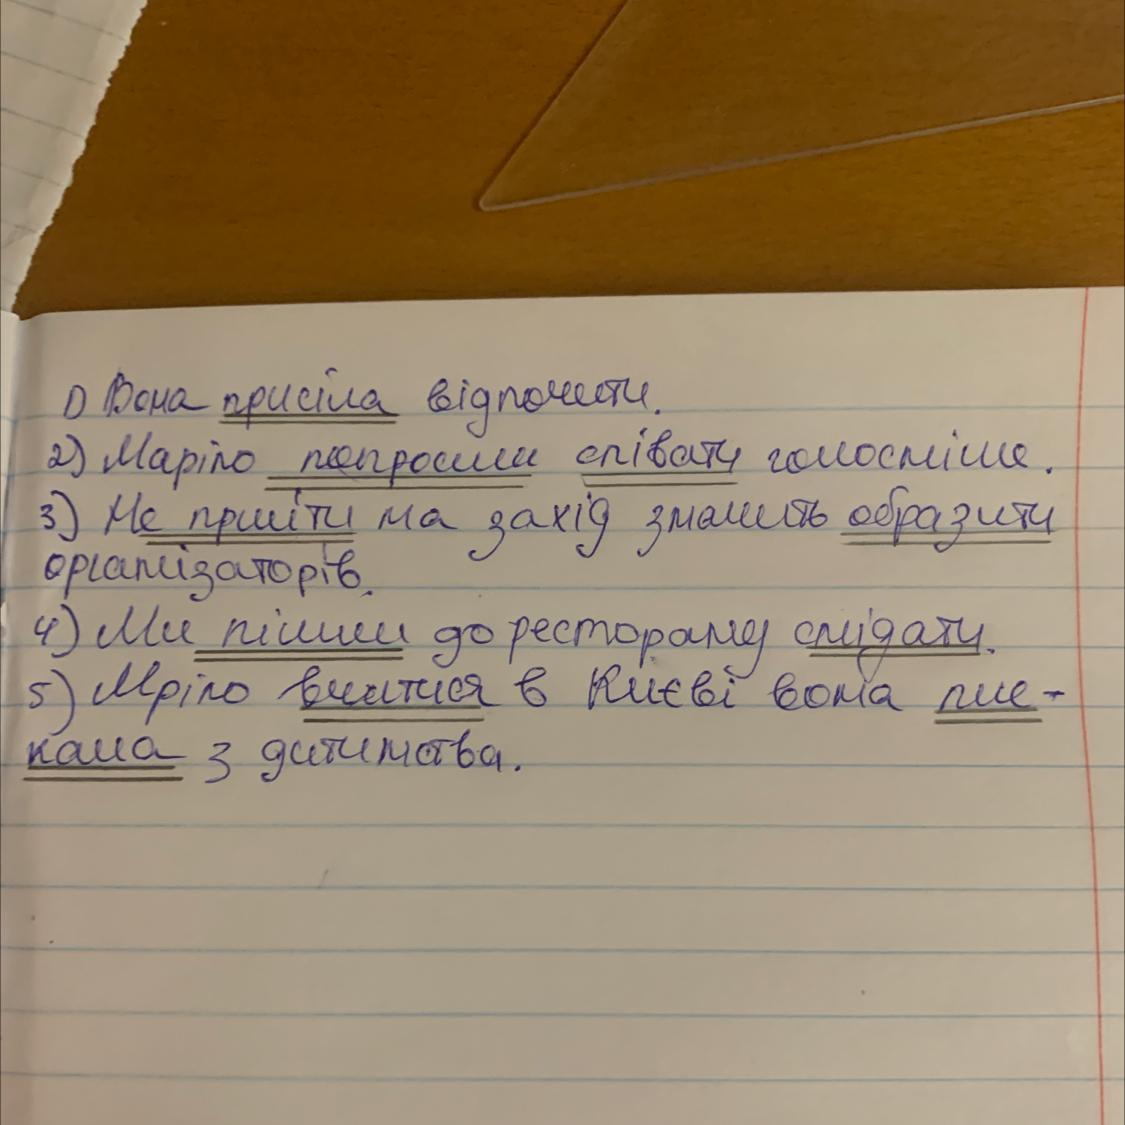 1) Вона присіла відпочити.
2) Марію попросили співати голосніше.
3) Не прийти на захід значить образити
організаторів.
4) Ми пішли до ресторану снідати.
5) Мрію вчитися в Києві вона пле-
кала з дитинства.